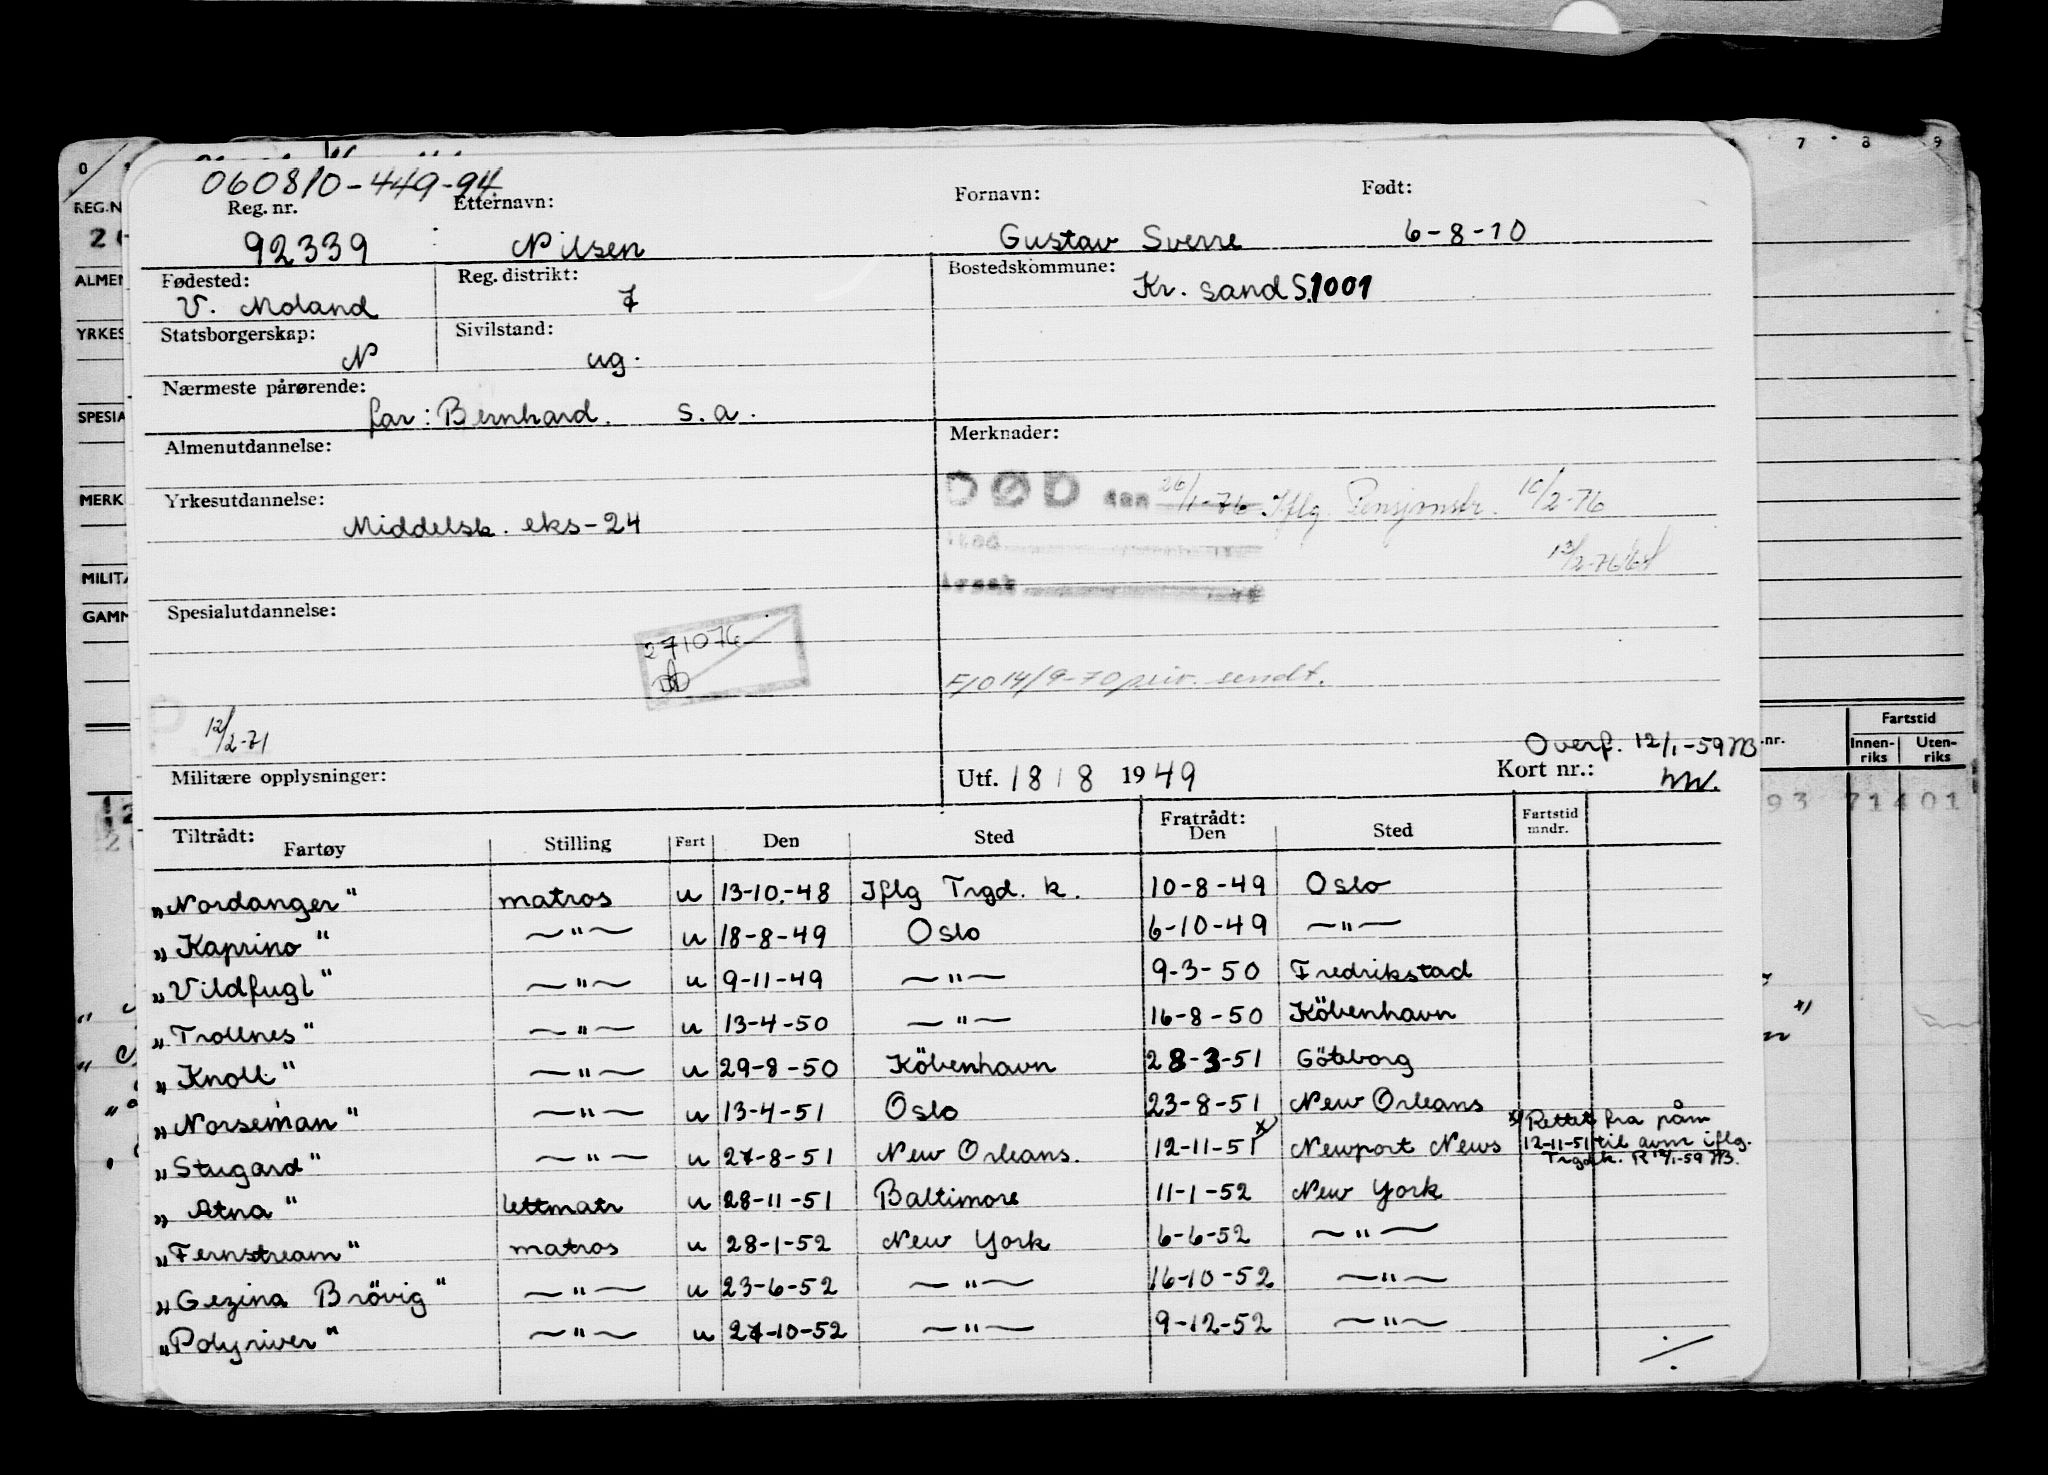 060810-449-94
Reg. nr. Etternavn: Fornavn: Født:
92339 Nilsen Gustav Sverre 6-8-10
Fødested: Reg. distrikt: Bostedskommune:
V. Moland 7 Kr. sand S. 1001
Statsborgerskap: Sivilstand:
N ug.
Nærmeste pårørende:
far: Bernhard. s.a.
Almenutdannelse: Merknader:
DØD den 26/1-76 Iflg. Pensjonstr. 10/2-76
Yrkesutdannelse:
Middelsk. eks-24
Spesialutdannelse:
271076
F/O 14/9-70 priv. sendt.
12/2-71
Overf. 12/1-59 JB
Militære opplysninger: Utf. 18/8 1949 Kort nr.:
Tiltrådt: Fratrådt: Fartstid
Fartøy Stilling Fart Den Sted Den Sted mndr.
„Nordanger" matros u 13-10-48 Iflg Trgd. k. 10-8-49 Oslo
„Kaprino" —"— u 18-8-49 Oslo 6-10-49 —"—
„Vildfugl" —"— u 9-11-49 —"— 9-3-50 Fredrikstad
„Trollnes" —"— u 13-4-50 —"— 16-8-50 Köbenhavn
„Knoll" —"— u 29-8-50 Köbenhavn 28-3-51 Göteborg
„Norseman" —"— u 13-4-51 Oslo 23-8-51 New Orleans
„Stugard" —"— u 27-8-51 New Orleans. 12-11-51 x) Newport News
x) Rettet fra påm
12-11-51 til avm iflg.
Trgd.k. R 12/1-59 JB.
„Atna" lettmatr u 28-11-51 Baltimore 11-1-52 New York
„Fernstream" matros u 28-1-52 New York 6-6-52 —"—
„Gezina Brövig" —"— u 23-6-52 —"— 16-10-52 —"—
„Polyriver" —"— u 27-10-52 —"— 9-12-52 —"—
./.
0
7 8 9
REG.N
ALMEN
YRKES
SPESIA
MERK
MILITÆ
GAMM
nr.
Fartstid
Innen-
riks
Uten-
riks
93 71401